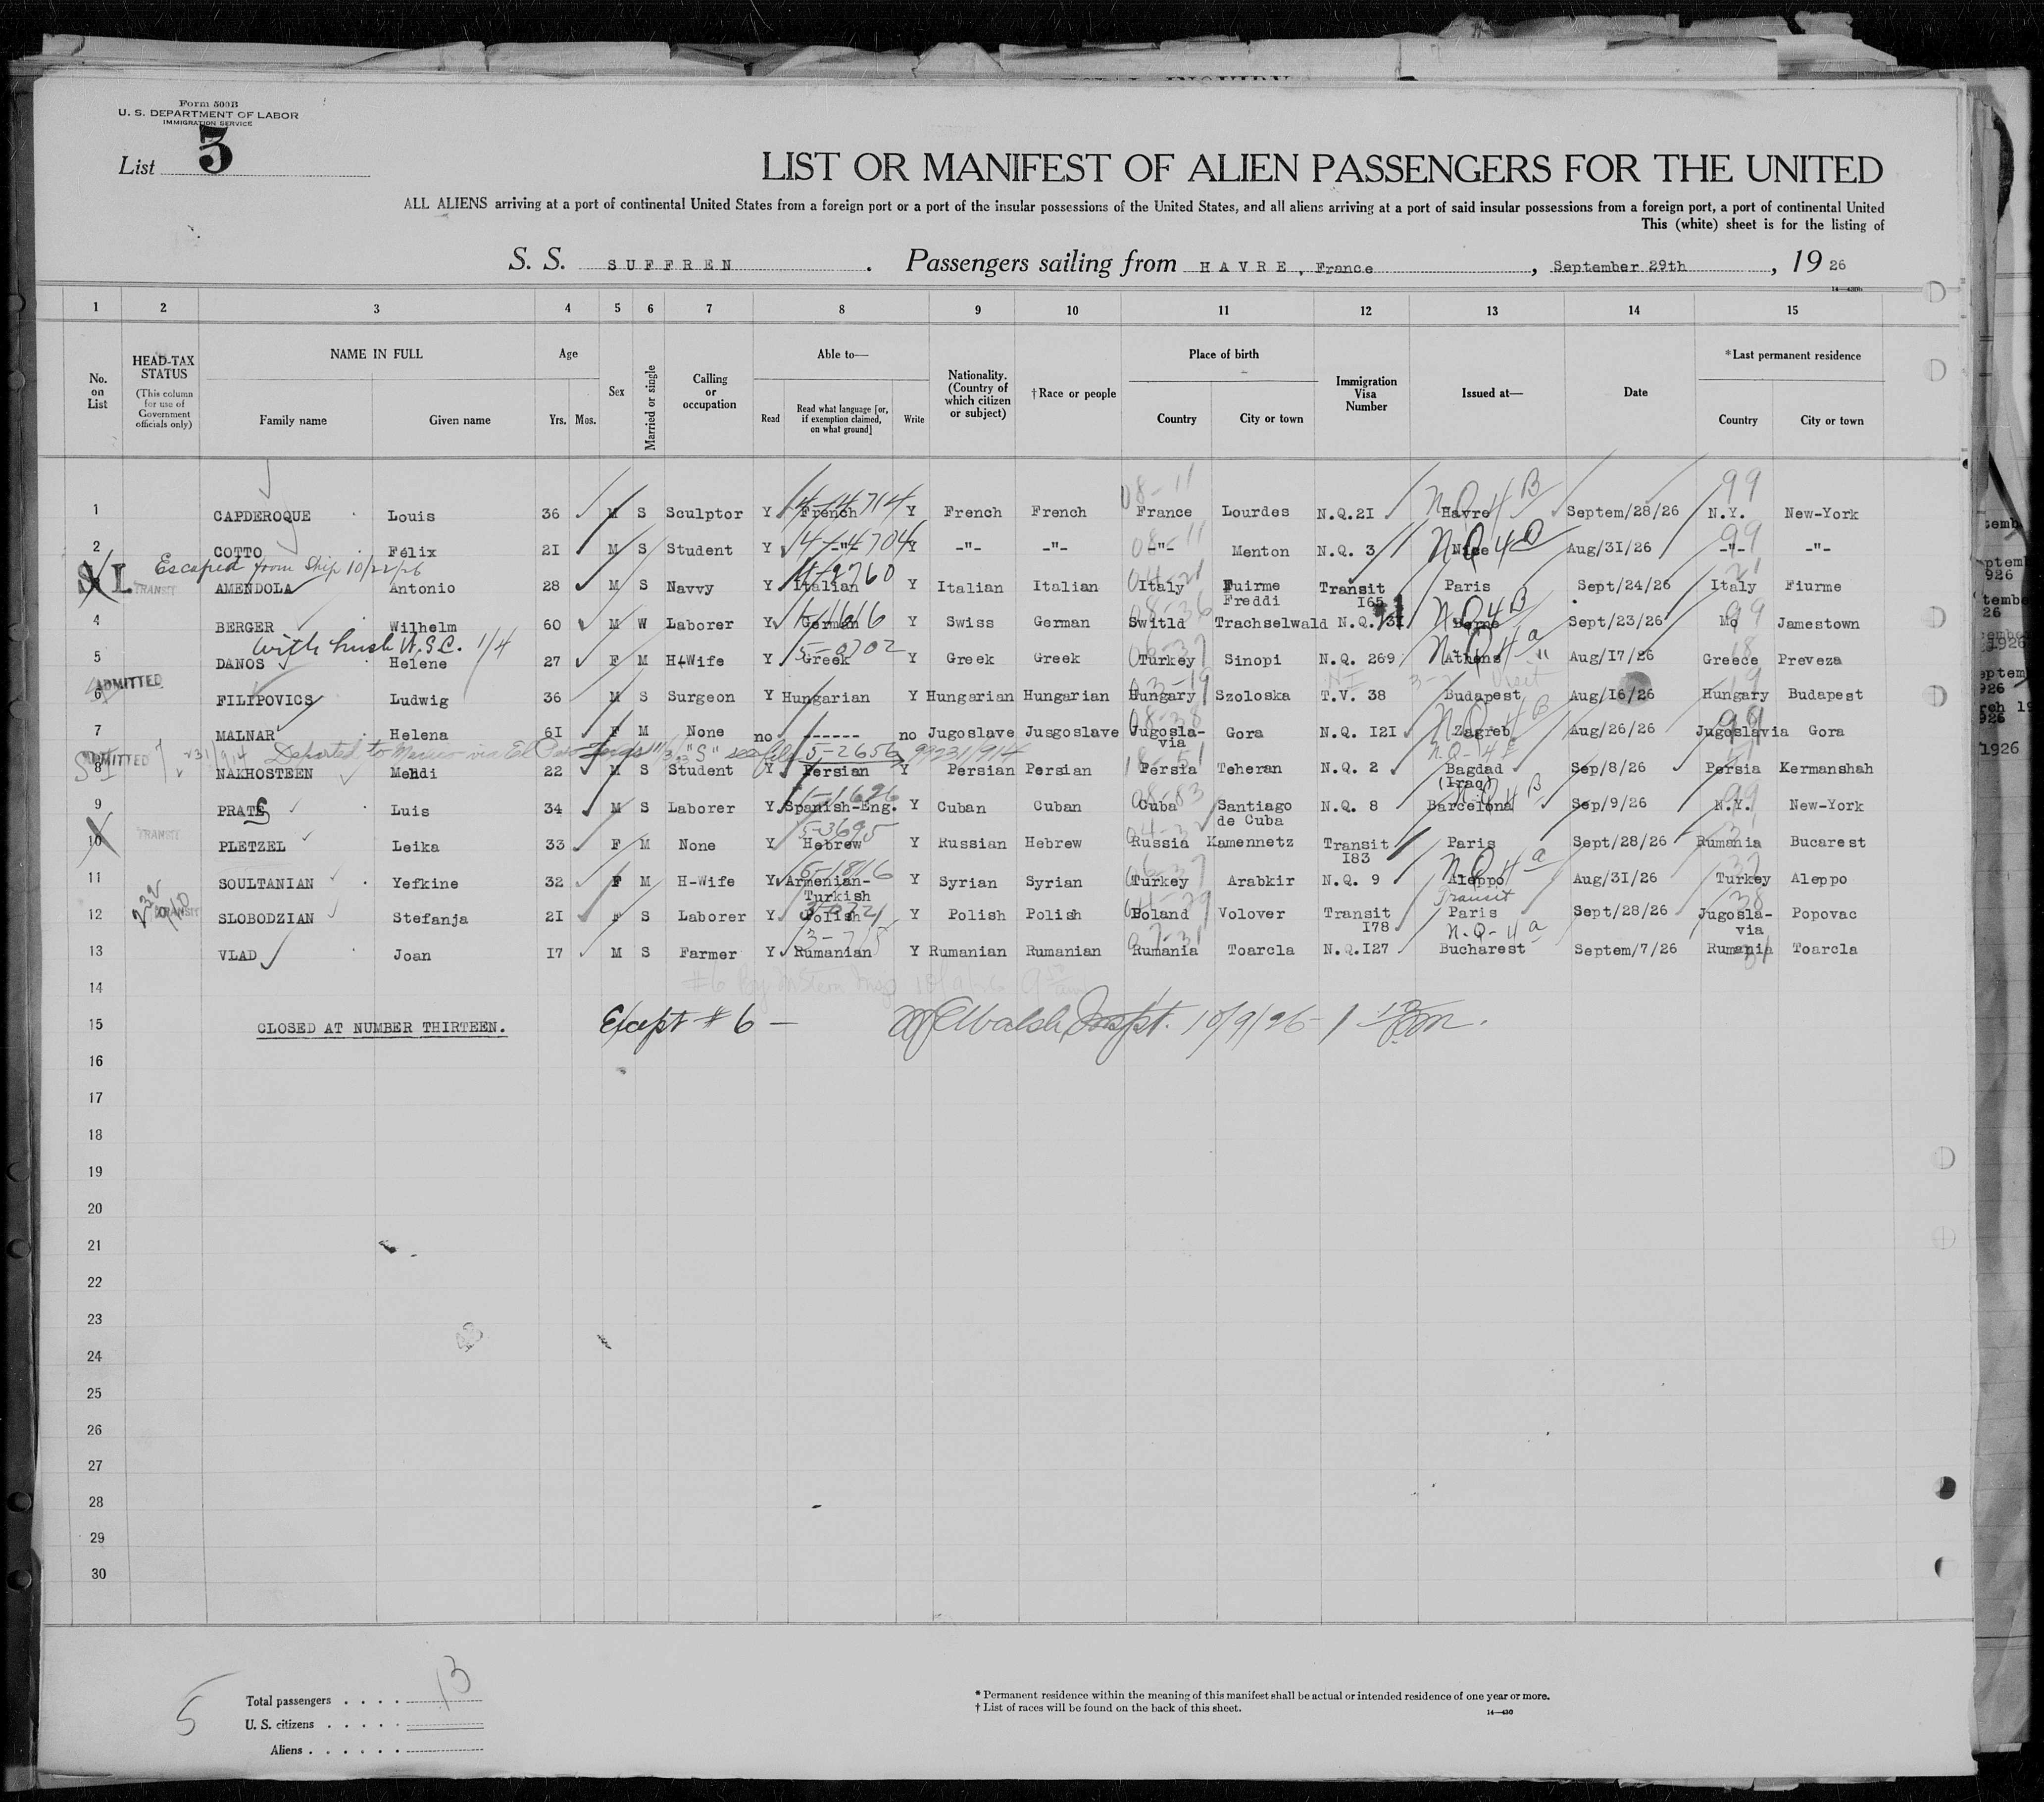 Form 500B
U. S. DEPARTMENT OF LABOR
IMMIGRATION SERVICE
List 5
LIST OR MANIFEST OF ALIEN PASSENGERS FOR THE UNITED
ALL ALIENS arriving at a port of continental United States from a foreign port or a port of the insular possessions of the United States, and all aliens arriving at a port of said insular possessions from a foreign port, a port of continental United
This (white) sheet is for the listing of
S. S. SUFFREN . Passengers sailing from HAVRE, France , September 29th , 19 26
1 2 3 4 5 6 7 8 9 10 11 12 13 14 15
No. on List
HEAD-TAX STATUS (This column for use of Government officials only)
NAME IN FULL Family name Given name
Age Yrs. Mos.
Sex
Married or single
Calling or occupation
Able to— Read Read what language [or, if exemption claimed, on what ground] Write
Nationality. (Country of which citizen or subject)
†Race or people
Place of birth Country City or town
Immigration Visa Number
Issued at—
Date
*Last permanent residence Country City or town
08-11 NQ4B 99
1 CAPDEROQUE Louis 36 M S Sculptor Y French Y French French France Lourdes N.Q.2I Havre Septem/28/26 N.Y. New-York
4-4704 08-11 99
2 COTTO Félix 2I M S Student Y -"- Y -"- -"- -"- Menton N.Q. 3 Nice Aug/3I/26 -"- -"-
Escaped from Ship 10/22/26
TRANSIT AMENDOLA Antonio 28 M S Navvy Y Italian Y Italian Italian Italy Fuirme Freddi Transit I65 Paris Sept/24/26 Italy Fiurme
5-1616 08-36 NQ4B 99
4 BERGER Wilhelm 60 M W Laborer Y German Y Swiss German Switld Trachselwald N.Q. 3I Berne Sept/23/26 Mo Jamestown
with husb U.S.C. 1/4 5-0702 NQ4a
5 DANOS Helene 27 F M H-Wife Y Greek Y Greek Greek Turkey Sinopi N.Q. 269 Athens Aug/I7/26 Greece Preveza
ADMITTED 03-19 Visit
6 FILIPOVICS Ludwig 36 M S Surgeon Y Hungarian Y Hungarian Hungarian Hungary Szoloska T.V. 38 Budapest Aug/I6/26 Hungary Budapest
08-38
7 MALNAR Helena 6I F M None no ------ no Jugoslave Jusgoslave Jugosla-via Gora N.Q. I2I Zagreb Aug/26/26 Jugoslavia Gora
ADMITTED Departed to Mexico via El Paso Texas "S" see file 5-2656 99231/914 N.Q-4E
8 NAKHOSTEEN Mehdi 22 M S Student Y Persian Y Persian Persian Persia Teheran N.Q. 2 Bagdad (Iraq) Sep/8/26 Persia Kermanshah
9 PRATS Luis 34 M S Laborer Y Spanish-Eng. Y Cuban Cuban Cuba Santiago de Cuba N.Q. 8 Barcelona Sep/9/26 N.Y. New-York
TRANSIT 5-3695
10 PLETZEL Leika 33 F M None Y Hebrew Y Russian Hebrew Russia Kamennetz Transit I83 Paris Sept/28/26 Rumania Bucarest
NQ4a
11 SOULTANIAN Yefkine 32 F M H-Wife Y Armenian-Turkish Y Syrian Syrian Turkey Arabkir N.Q. 9 Aleppo Aug/3I/26 Turkey Aleppo
TRANSIT Transit
12 SLOBODZIAN Stefanja 2I F S Laborer Y Polish Y Polish Polish Poland Volover Transit I78 Paris Sept/28/26 Jugosla-via Popovac
N.Q-4a
13 VLAD Joan I7 M S Farmer Y Rumanian Y Rumanian Rumanian Rumania Toarcla N.Q.I27 Bucharest Septem/7/26 Rumania Toarcla
14
15 CLOSED AT NUMBER THIRTEEN. Except #6 — Walsh Inspt. 10/9/26
16
17
18
19
20
21
22
23
24
25
26
27
28
29
30
5
Total passengers . . . . 13
U. S. citizens . . . . .
Aliens . . . . . .
* Permanent residence within the meaning of this manifest shall be actual or intended residence of one year or more.
† List of races will be found on the back of this sheet.
14—430